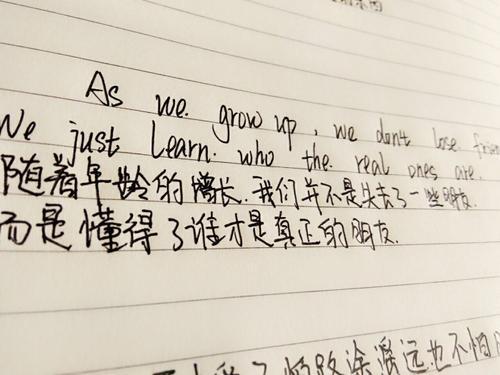 As we grow up, we don't lose
We just learn who the real ones are.
随着年龄的增长.我们并不是失去了一些朋友.
而是懂得了谁才是真正的朋友.
怕路途遥远也不怕